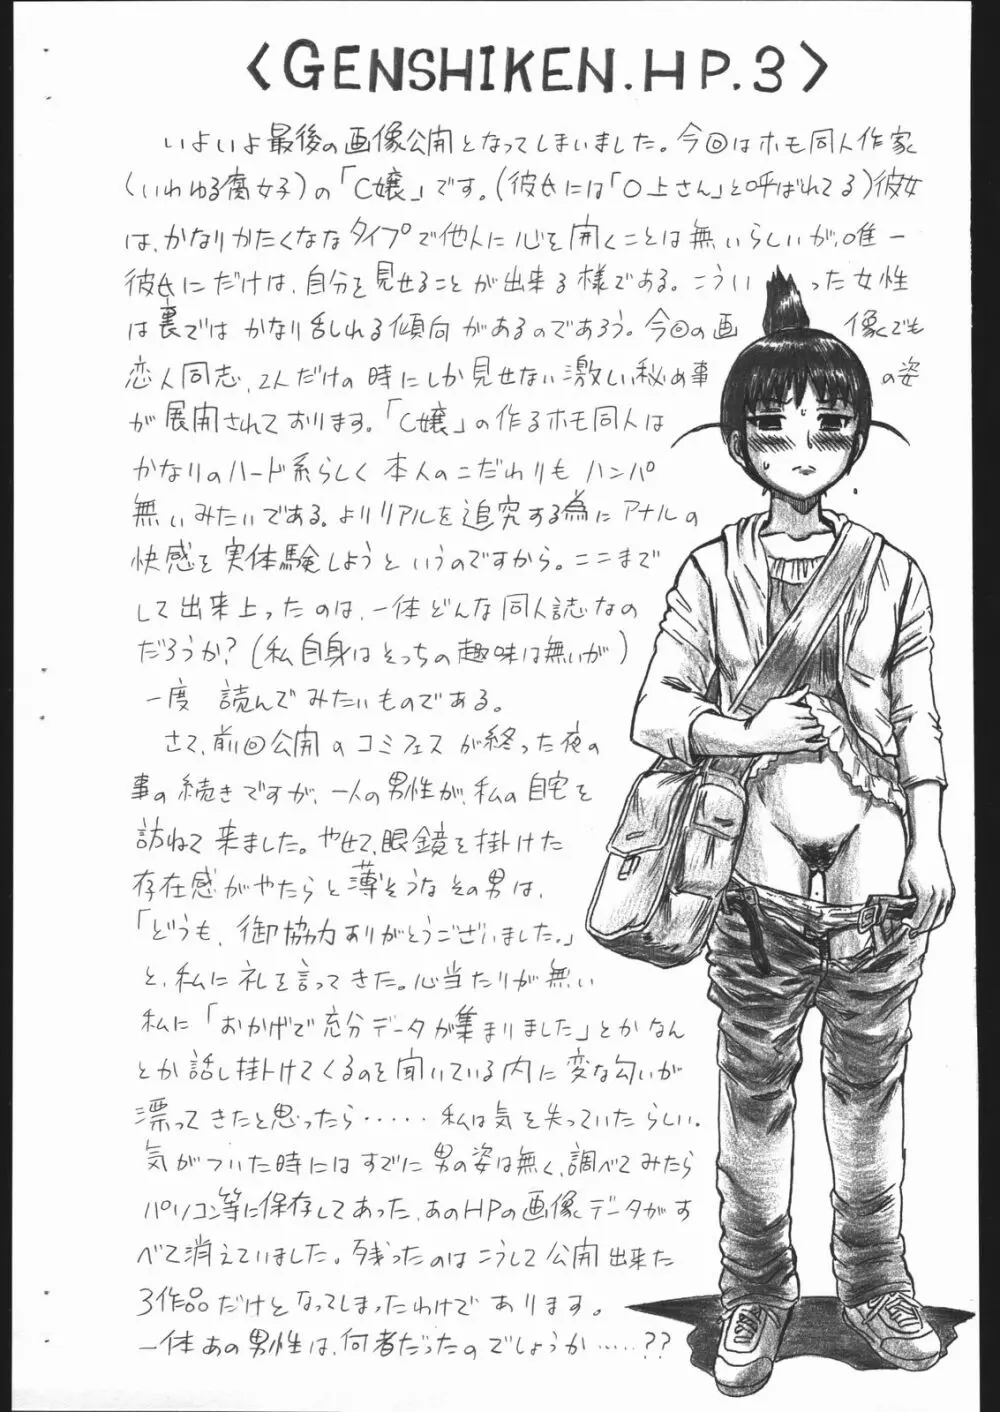 <GENSHIKEN.HP.3>
いよいよ最後の画像公開となってしまいました。今回はホモ同人作家
(いわゆる腐女子)の「C嬢」です。(彼氏には「O上さん」と呼ばれてる)彼女
は、かなりかたくななタイプで他人に心を開くことは無いらしいが、唯一
彼氏にだけは、自分を見せることが出来る様である。こういった女性
は裏ではかなり乱れる傾向があるのであろう。今回の画像でも
恋人同志、2人だけの時にしか見せない激しい秘め事の姿
が展開されております。「C嬢」の作るホモ同人は
かなりのハード系らしく本人のこだわりもハンパ
無いみたいである。よりリアルを追究する為にアナルの
快感を実体験しようというのですから。ここまで
して出来上ったのは、一体どんな同人誌なの
だろうか?(私自身はそっちの趣味は無いが)
一度 読んでみたいものである。
さて、前回公開のコミフェスが終った夜の
事の続きですが、一人の男性が、私の自宅を
訪ねて来ました。やせて、眼鏡を掛けた
存在感がやたらと薄そうなその男は、
「どうも、御協力ありがとうございました。」
と、私に礼を言ってきた。心当たりが無い
私に「おかげで充分データが集まりました」とかなん
とか話し掛けてくるのを聞いている内に変な匂いが
漂ってきたと思ったら‥‥‥私は気を失っていたらしい。
気がついた時にはすでに男の姿は無く、調べてみたら
パソコン等に保存してあった、あのHPの画像データがす
べて消えていました。残ったのはこうして公開出来た
3作品だけとなってしまったわけであります。
一体あの男性は、何者だったのでしょうか……??